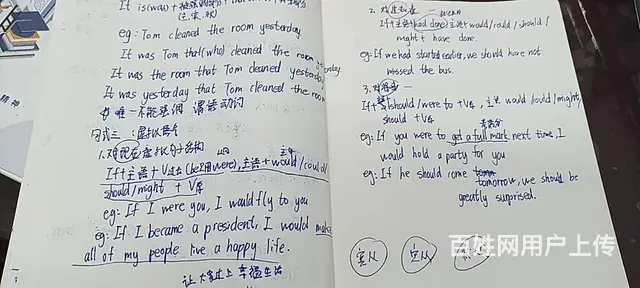 It is(was) + 
eg: Tom cleaned the room yesterday.
It was Tom that(who) cleaned the room yesterday
It was the room that Tom cleaned yesterday.
It was yesterday that Tom cleaned the room
唯一不能强调 谓语动词
句式三：虚拟语气
1. 对现在虚拟
If + 主语 + V过去(be用were), 主语 + would / could /
should / might + V原
eg: If I were you, I would fly to you
eg: If I became a president, I would make
all of my people live a happy life.
让大家过上幸福生活
2. 对过去虚拟
If + 主语 (had done), 主语 would / could / should /
might + have done.
eg: If we had started earlier, we should have not
missed the bus.
3. 对将来
If + should / were to + V原, 主语 would / could / might /
should + V原
考满分
eg: If you were to get a full mark next time, I
would hold a party for you
eg: If he should come tomorrow, we should be
greatly surprised.
宾从
百姓网用户上传